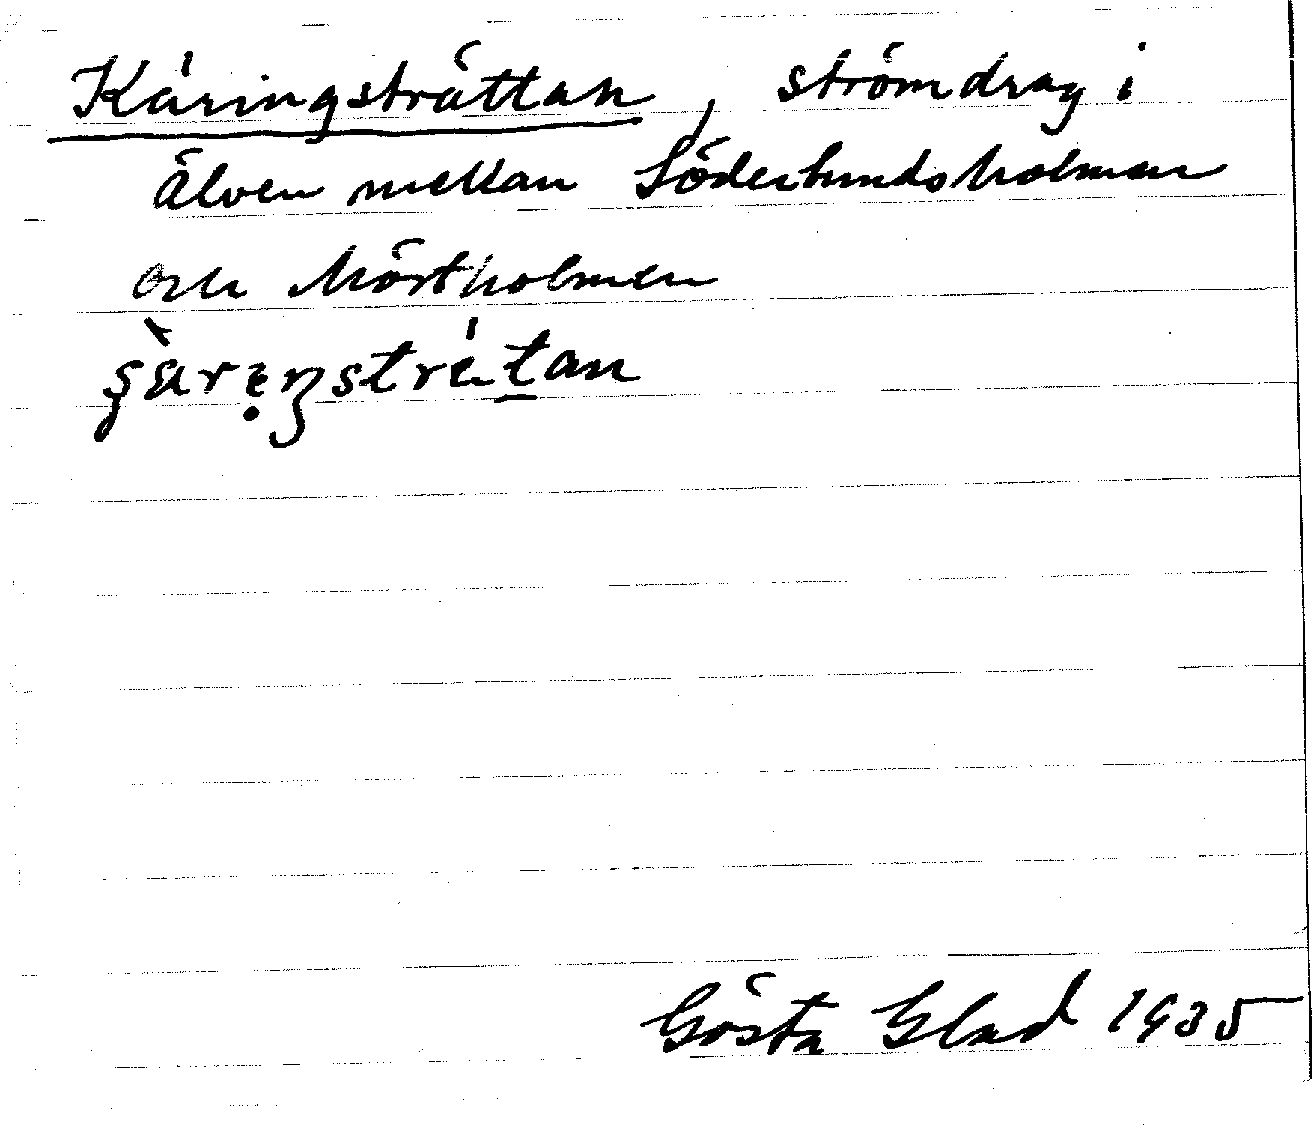 Käringsträttan, strömdrag i
älven mellan Söderlundsholmen
och Mörtholmen
Gösta Glad 1935